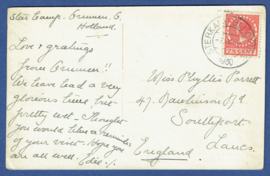 Star Camp. Ommen. O,
Holland.
Love & greetings
from Ommen!!
We have had a very
glorious time tho'
pretty wet - Thought
you would like a reminder
of your visit. Hope you
are all well.
Miss Phyllis Parrett
47 Rawlinson Rd
Southport
Lancs.
England
1930